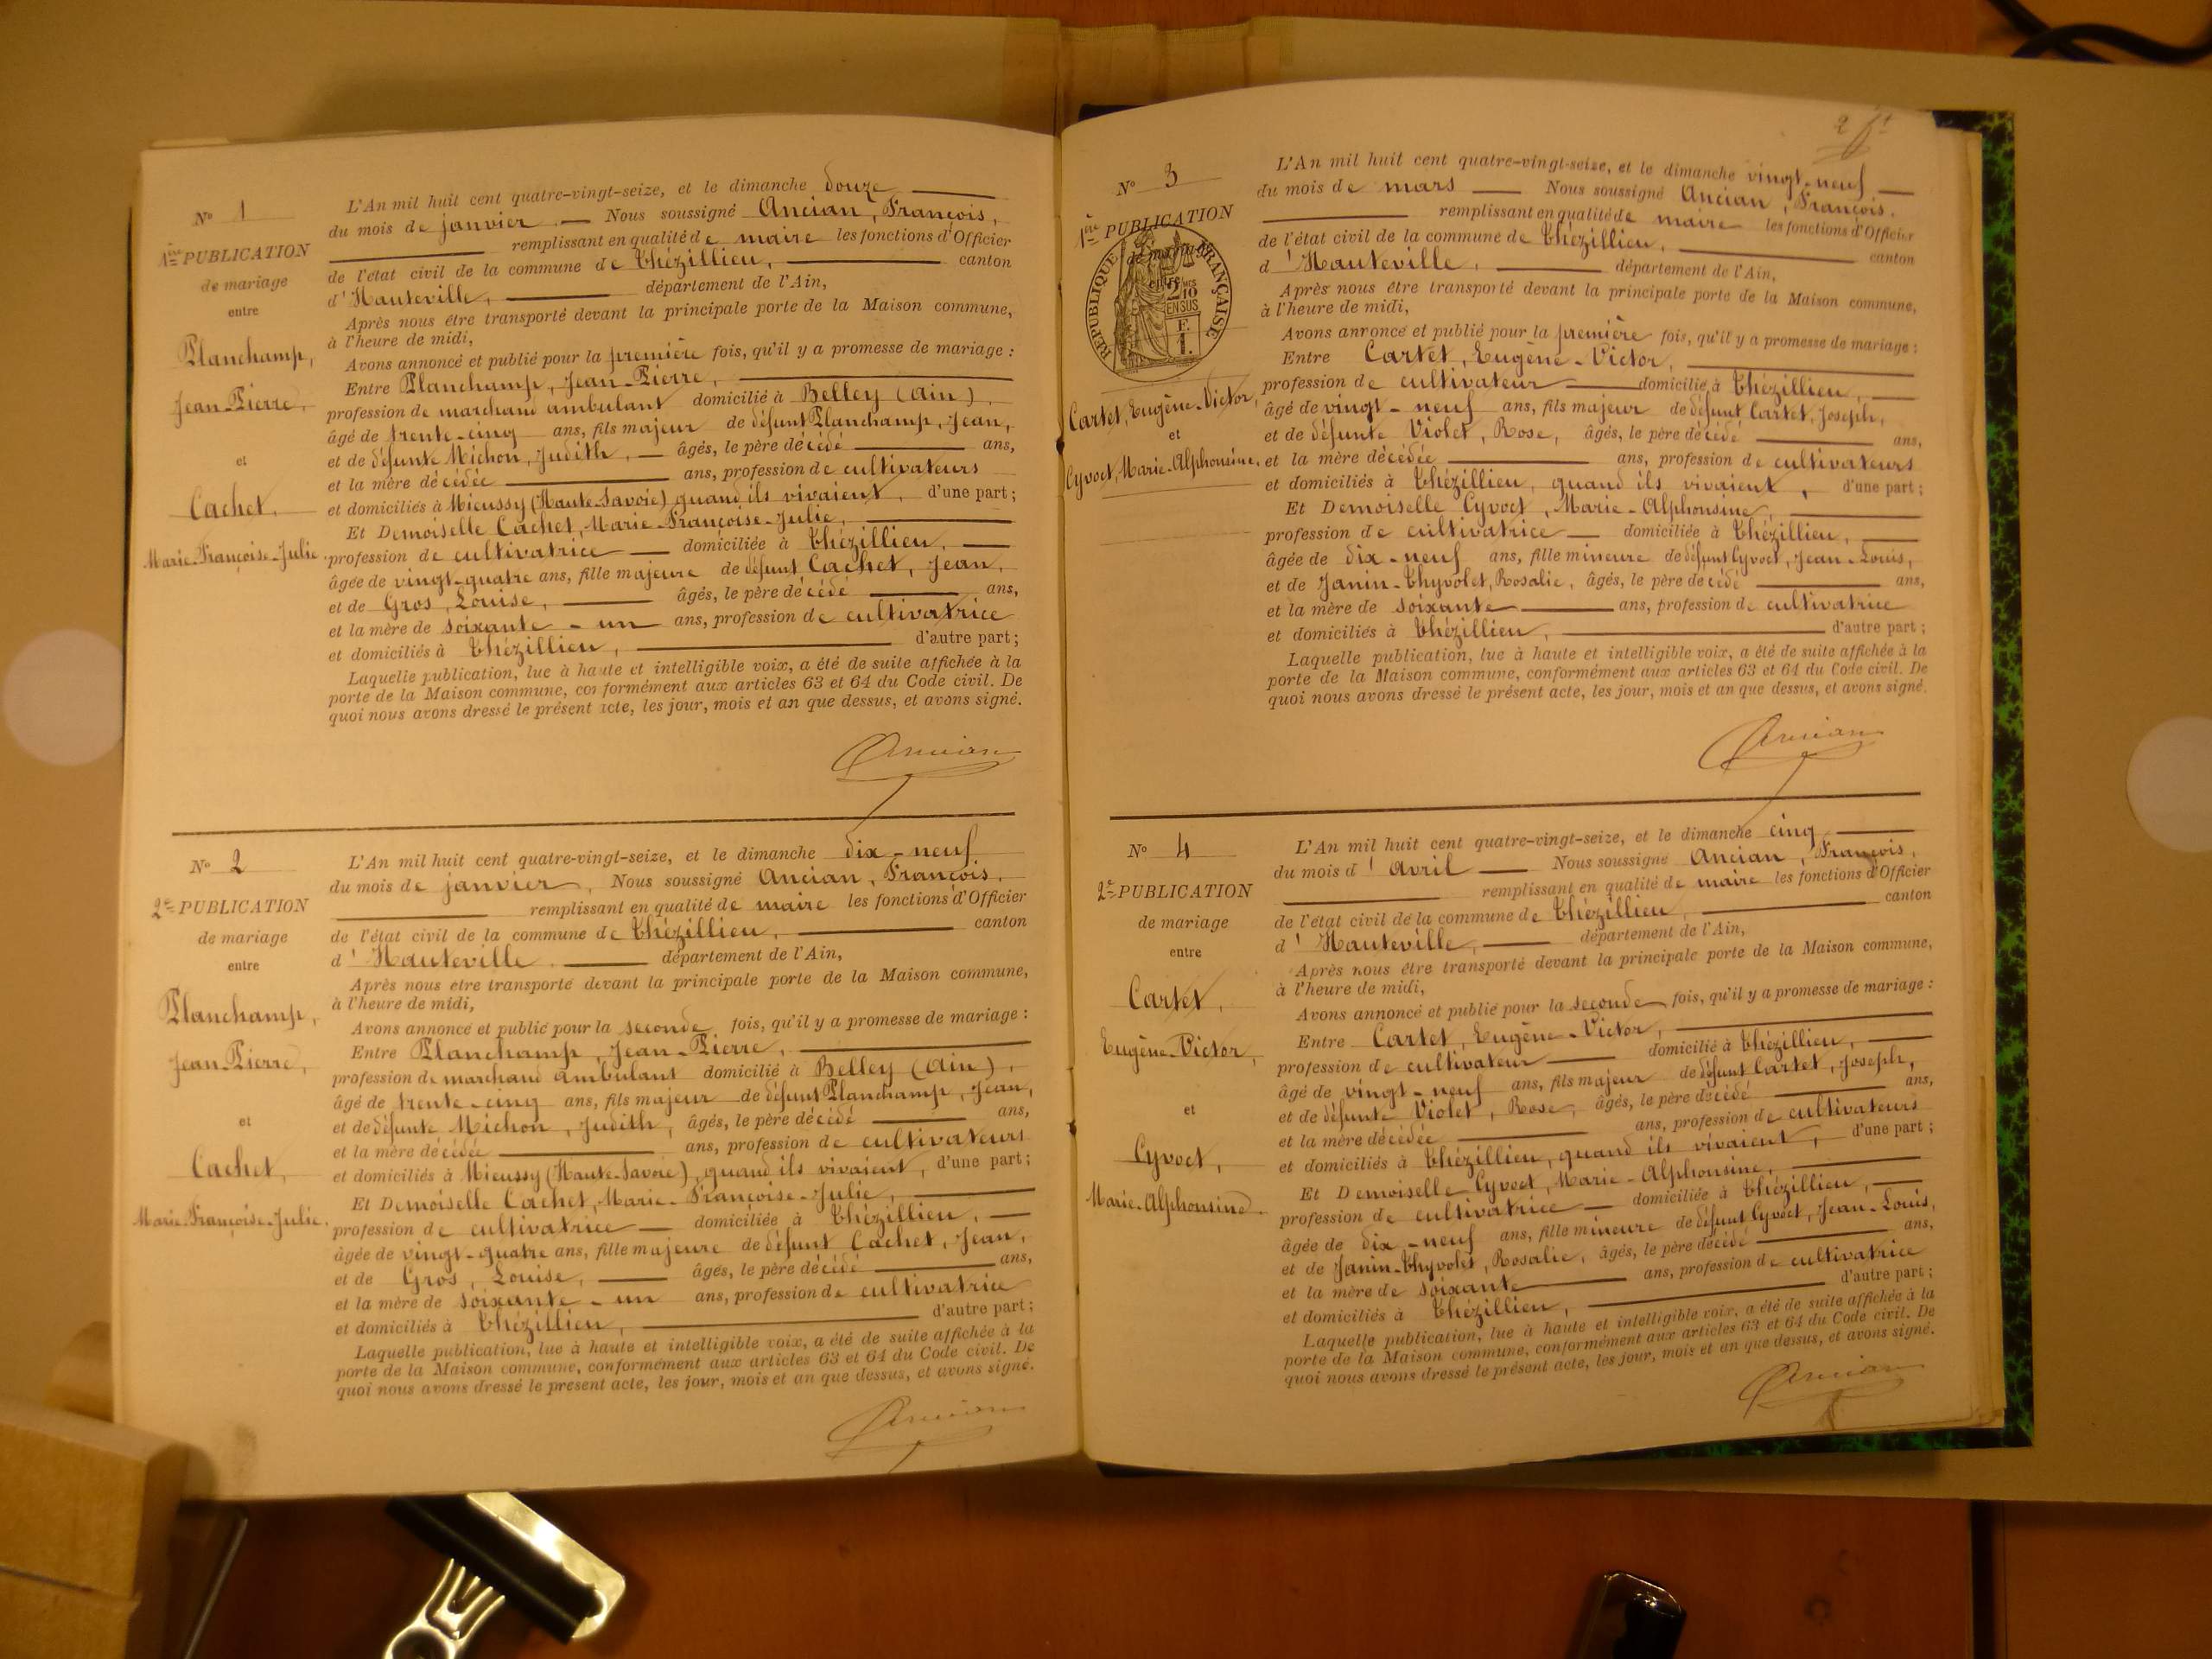 N° 1
1ère PUBLICATION
de mariage
entre
Planchamp,
Jean-Pierre,
et
Cachet,
Marie-Françoise-Julie.
L'An mil huit cent quatre-vingt-seize, et le dimanche douze
du mois de janvier. Nous soussigné Ancian, François,
remplissant en qualité de maire les fonctions d'Officier
de l'état civil de la commune de Thézillieu, canton
d'Hauteville, département de l'Ain,
Après nous être transporté devant la principale porte de la Maison commune,
à l'heure de midi,
Avons annoncé et publié pour la première fois, qu'il y a promesse de mariage :
Entre Planchamp, Jean-Pierre,
profession de marchand ambulant domicilié à Belley (Ain),
âgé de trente-cinq ans, fils majeur de défunt Planchamp, Jean,
et de défunte Michon, Judith, âgés, le père décédé ans,
et la mère décédée ans, profession de cultivateurs
et domiciliés à Mieussy (Haute-Savoie) quand ils vivaient, d'une part ;
Et Demoiselle Cachet, Marie-Françoise-Julie,
profession de cultivatrice domiciliée à Thézillieu,
âgée de vingt-quatre ans, fille majeure de défunt Cachet, Jean,
et de Gros, Louise, âgés, le père décédé ans,
et la mère de soixante-un ans, profession de cultivatrice
et domiciliés à Thézillieu, d'autre part ;
Laquelle publication, lue à haute et intelligible voix, a été de suite affichée à la
porte de la Maison commune, conformément aux articles 63 et 64 du Code civil. De
quoi nous avons dressé le présent acte, les jour, mois et an que dessus, et avons signé.
Ancian
N° 2
2e PUBLICATION
de mariage
entre
Planchamp,
Jean-Pierre,
et
Cachet,
Marie-Françoise-Julie.
L'An mil huit cent quatre-vingt-seize, et le dimanche dix-neuf
du mois de janvier, Nous soussigné Ancian, François.
remplissant en qualité de maire les fonctions d'Officier
de l'état civil de la commune de Thézillieu, canton
d'Hauteville. département de l'Ain,
Après nous être transporté devant la principale porte de la Maison commune,
à l'heure de midi,
Avons annoncé et publié pour la seconde fois, qu'il y a promesse de mariage :
Entre Planchamp, Jean-Pierre,
profession de marchand ambulant domicilié à Belley (Ain),
âgé de trente-cinq ans, fils majeur de défunt Planchamp, Jean,
et de défunte Michon, Judith, âgés, le père décédé ans,
et la mère décédée ans, profession de cultivateurs
et domiciliés à Mieussy (Haute-Savoie), quand ils vivaient, d'une part ;
Et Demoiselle Cachet, Marie-Françoise-Julie,
profession de cultivatrice domiciliée à Thézillieu,
âgée de vingt-quatre ans, fille majeure de défunt Cachet, Jean,
et de Gros, Louise, âgés, le père décédé ans,
et la mère de soixante-un ans, profession de cultivatrice
et domiciliés à Thézillieu, d'autre part ;
Laquelle publication, lue à haute et intelligible voix, a été de suite affichée à la
porte de la Maison commune, conformément aux articles 63 et 64 du Code civil. De
quoi nous avons dressé le présent acte, les jour, mois et an que dessus, et avons signé.
Ancian
2
N° 3
1ère PUBLICATION
de mariage
entre
RÉPUBLIQUE FRANÇAISE
2 10
EN SUS
Cartet, Eugène-Victor,
et
Cyvoct, Marie-Alphonsine,
L'An mil huit cent quatre-vingt-seize, et le dimanche vingt-neuf
du mois de mars Nous soussigné Ancian, François.
remplissant en qualité de maire les fonctions d'Officier
de l'état civil de la commune de Thézillieu, canton
d'Hauteville, département de l'Ain,
Après nous être transporté devant la principale porte de la Maison commune,
à l'heure de midi,
Avons annoncé et publié pour la première fois, qu'il y a promesse de mariage :
Entre Cartet, Eugène-Victor,
profession de cultivateur domicilié à Thézillieu,
âgé de vingt-neuf ans, fils majeur de défunt Cartet, Joseph,
et de défunte Violet, Rose, âgés, le père décédé ans,
et la mère décédée ans, profession de cultivateurs
et domiciliés à Thézillieu, quand ils vivaient, d'une part ;
Et Demoiselle Cyvoct, Marie-Alphonsine,
profession de cultivatrice domiciliée à Thézillieu,
âgée de dix-neuf ans, fille mineure de défunt Cyvoct, Jean-Louis,
et de Janin-Thyvolet, Rosalie, âgés, le père décédé ans,
et la mère de soixante ans, profession de cultivatrice
et domiciliés à Thézillieu, d'autre part ;
Laquelle publication, lue à haute et intelligible voix, a été de suite affichée à la
porte de la Maison commune, conformément aux articles 63 et 64 du Code civil. De
quoi nous avons dressé le présent acte, les jour, mois et an que dessus, et avons signé.
Ancian
N° 4
2e PUBLICATION
de mariage
entre
Cartet,
Eugène-Victor,
et
Cyvoct,
Marie-Alphonsine.
L'An mil huit cent quatre-vingt-seize, et le dimanche cinq
du mois d'avril Nous soussigné Ancian, François,
remplissant en qualité de maire les fonctions d'Officier
de l'état civil de la commune de Thézillieu, canton
d'Hauteville, département de l'Ain,
Après nous être transporté devant la principale porte de la Maison commune,
à l'heure de midi,
Avons annoncé et publié pour la seconde fois, qu'il y a promesse de mariage :
Entre Cartet, Eugène-Victor,
profession de cultivateur domicilié à Thézillieu,
âgé de vingt-neuf ans, fils majeur de défunt Cartet, Joseph,
et de défunte Violet, Rose, âgés, le père décédé ans,
et la mère décédée ans, profession de cultivateurs
et domiciliés à Thézillieu, quand ils vivaient, d'une part ;
Et Demoiselle Cyvoct, Marie-Alphonsine,
profession de cultivatrice domiciliée à Thézillieu,
âgée de dix-neuf ans, fille mineure de défunt Cyvoct, Jean-Louis,
et de Janin-Thyvolet, Rosalie, âgés, le père décédé ans,
et la mère de soixante ans, profession de cultivatrice
et domiciliés à Thézillieu, d'autre part ;
Laquelle publication, lue à haute et intelligible voix, a été de suite affichée à la
porte de la Maison commune, conformément aux articles 63 et 64 du Code civil. De
quoi nous avons dressé le présent acte, les jour, mois et an que dessus, et avons signé.
Ancian